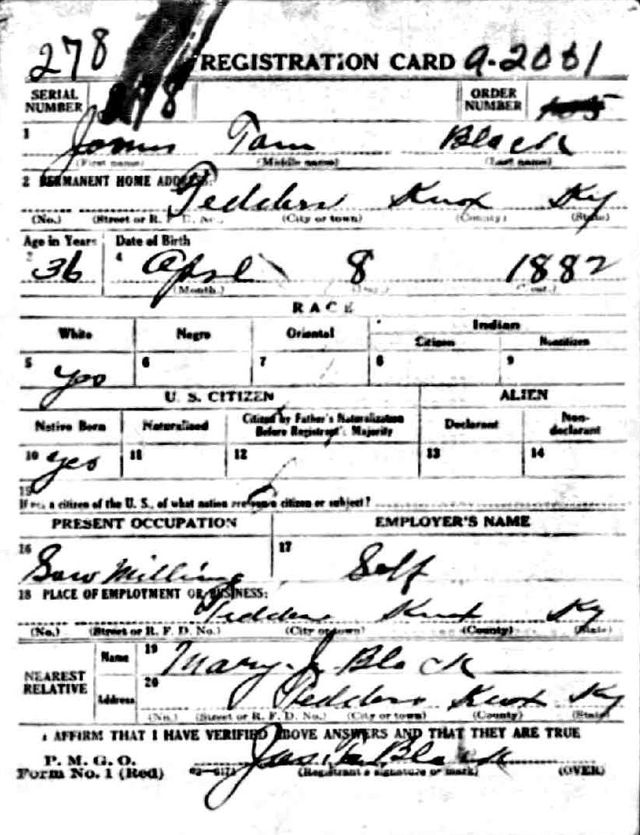 278 REGISTRATION CARD A-2001
SERIAL NUMBER 278 ORDER NUMBER
1 Tom Black
(First name) (Middle name) (Last name)
2 PERMANENT HOME ADDRESS:
Tedders Knox Ky
(No.) (Street or R. F. D. No.) (City or town) (County) (State)
Age in Years Date of Birth
3 36 4 April 8 1882
(Month.) (Day.) (Year.)
RACE
White Negro Oriental Indian
Citizen Noncitizen
5 yes 6 7 8 9
U. S. CITIZEN ALIEN
Native Born Naturalized Citizen by Father's Naturalization Before Registrant's Majority Declarant Non-declarant
10 yes 11 12 13 14
15
If not a citizen of the U. S., of what nation are you a citizen or subject?
PRESENT OCCUPATION EMPLOYER'S NAME
16 Saw Milling 17 Self
18 PLACE OF EMPLOYMENT OR BUSINESS:
Tedders Knox Ky
(No.) (Street or R. F. D. No.) (City or town) (County) (State)
NEAREST RELATIVE Name 19 Mary J Black
Address 20 Tedders Knox Ky
(No.) (Street or R. F. D. No.) (City or town) (County) (State)
I AFFIRM THAT I HAVE VERIFIED ABOVE ANSWERS AND THAT THEY ARE TRUE
P. M. G. O.
Form No. 1 (Red) Black
(Registrant's signature or mark) (OVER)